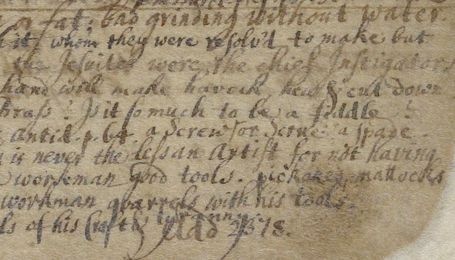 fat: bad grinding without water.
whom they were resolv'd to make but
the Jesuites were the chief Instigators
hand will make havock, hew & cut down
brass: so much to be a fiddle
a Screw or a spade.
is never the less an Artist for not having
workman good tools. pickaxes mattocks
workman quarrels with his tools.
ls of his Craft tyranny.
Add 2378.